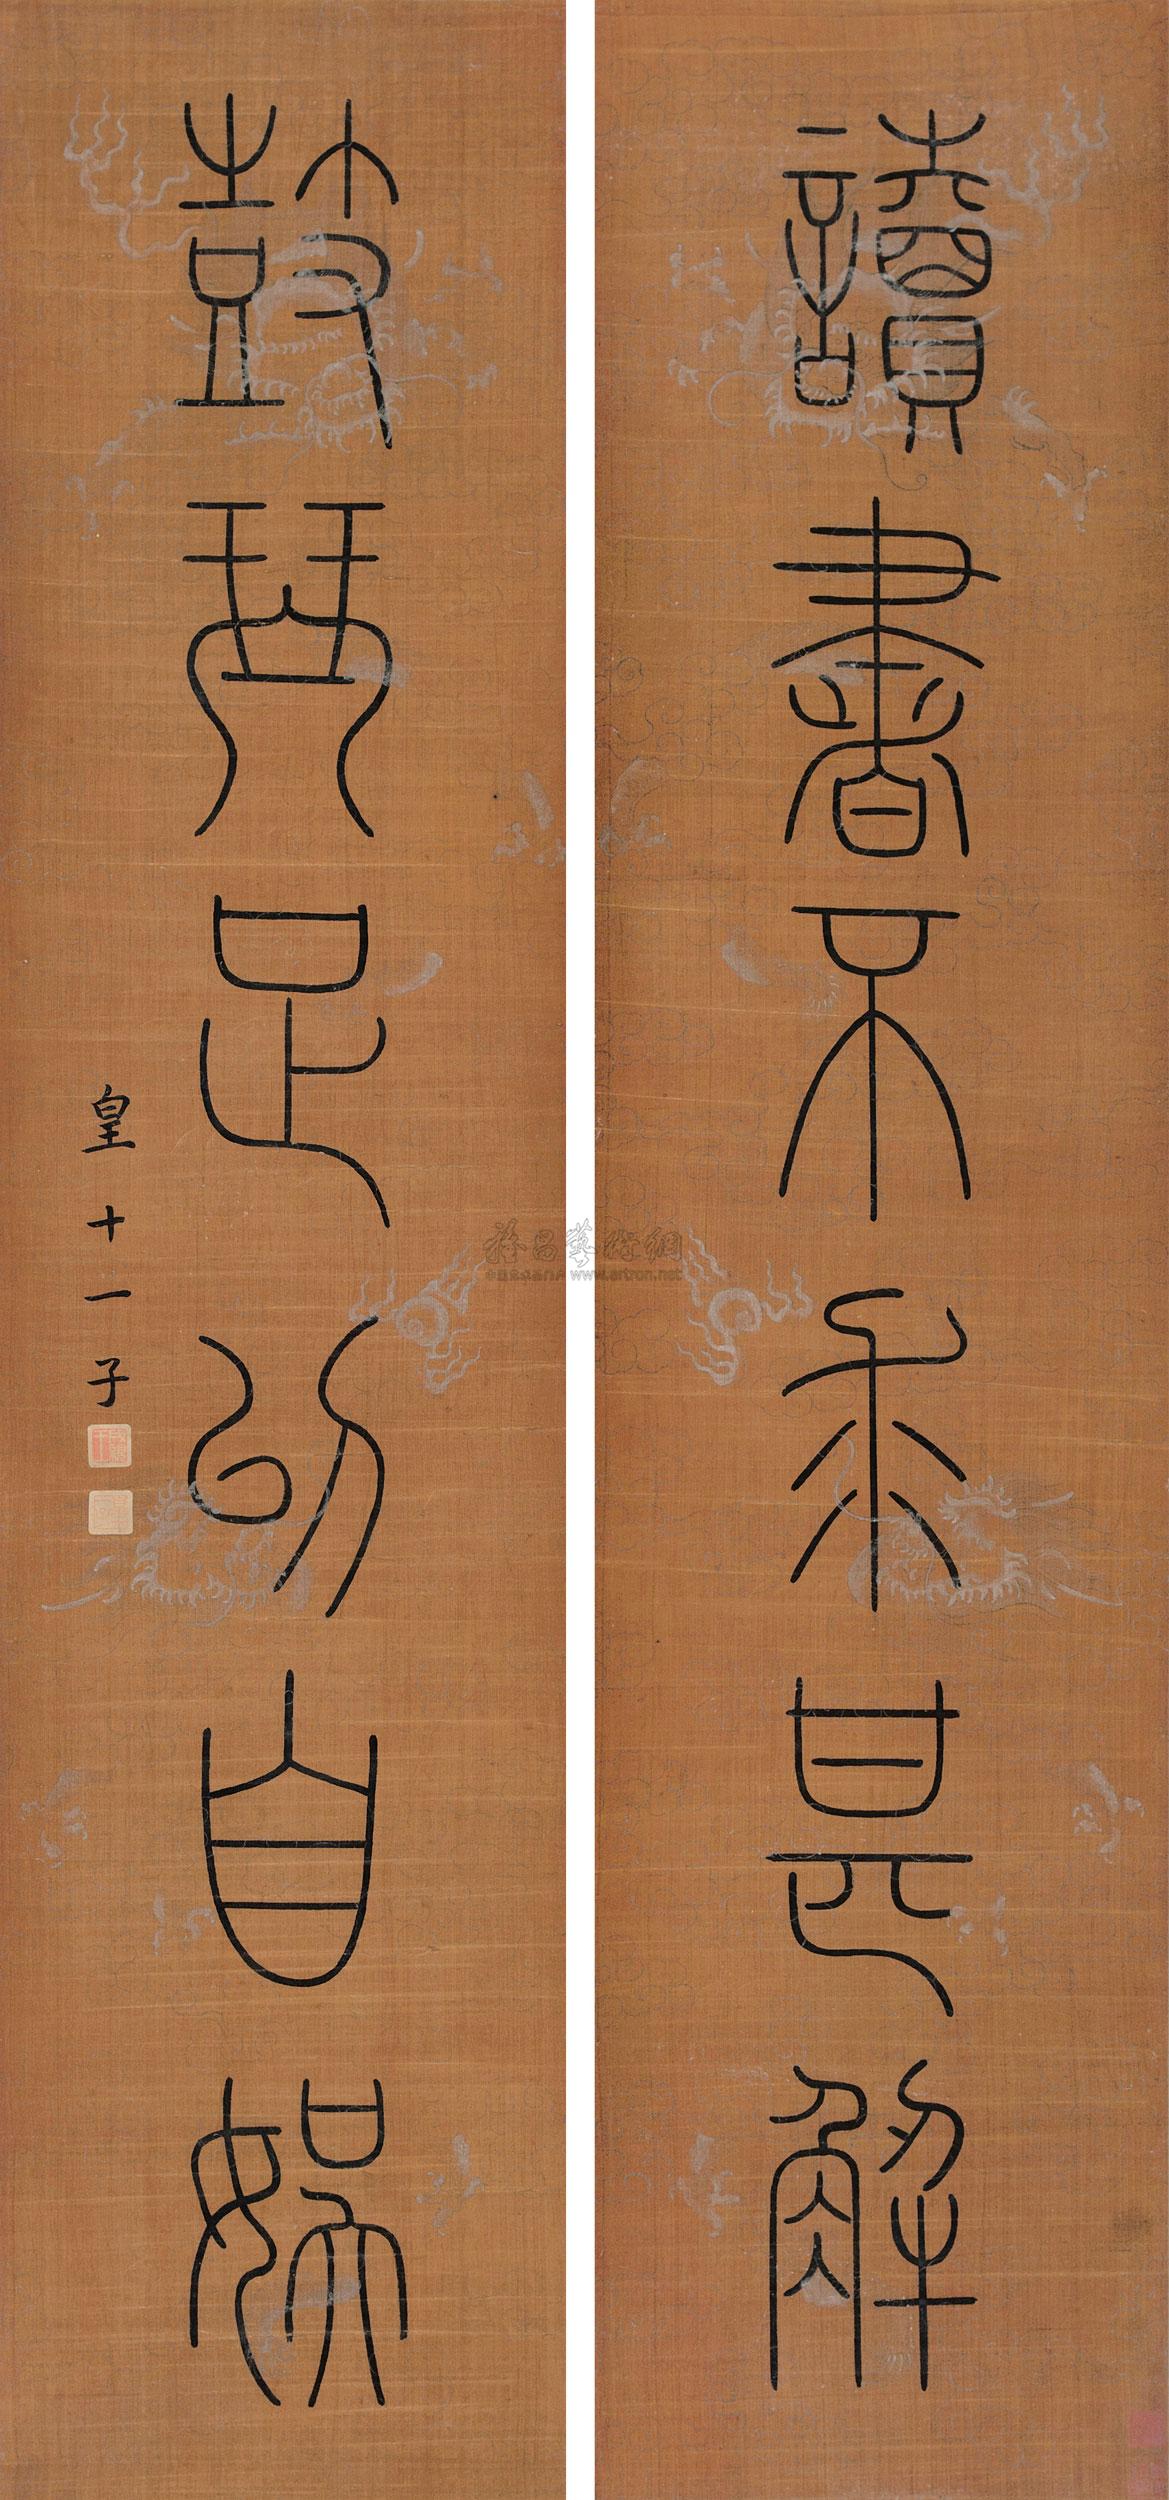 讀書不求甚解
鼓琴足以自娛
皇十一子
雅昌藝術網
www.artron.net